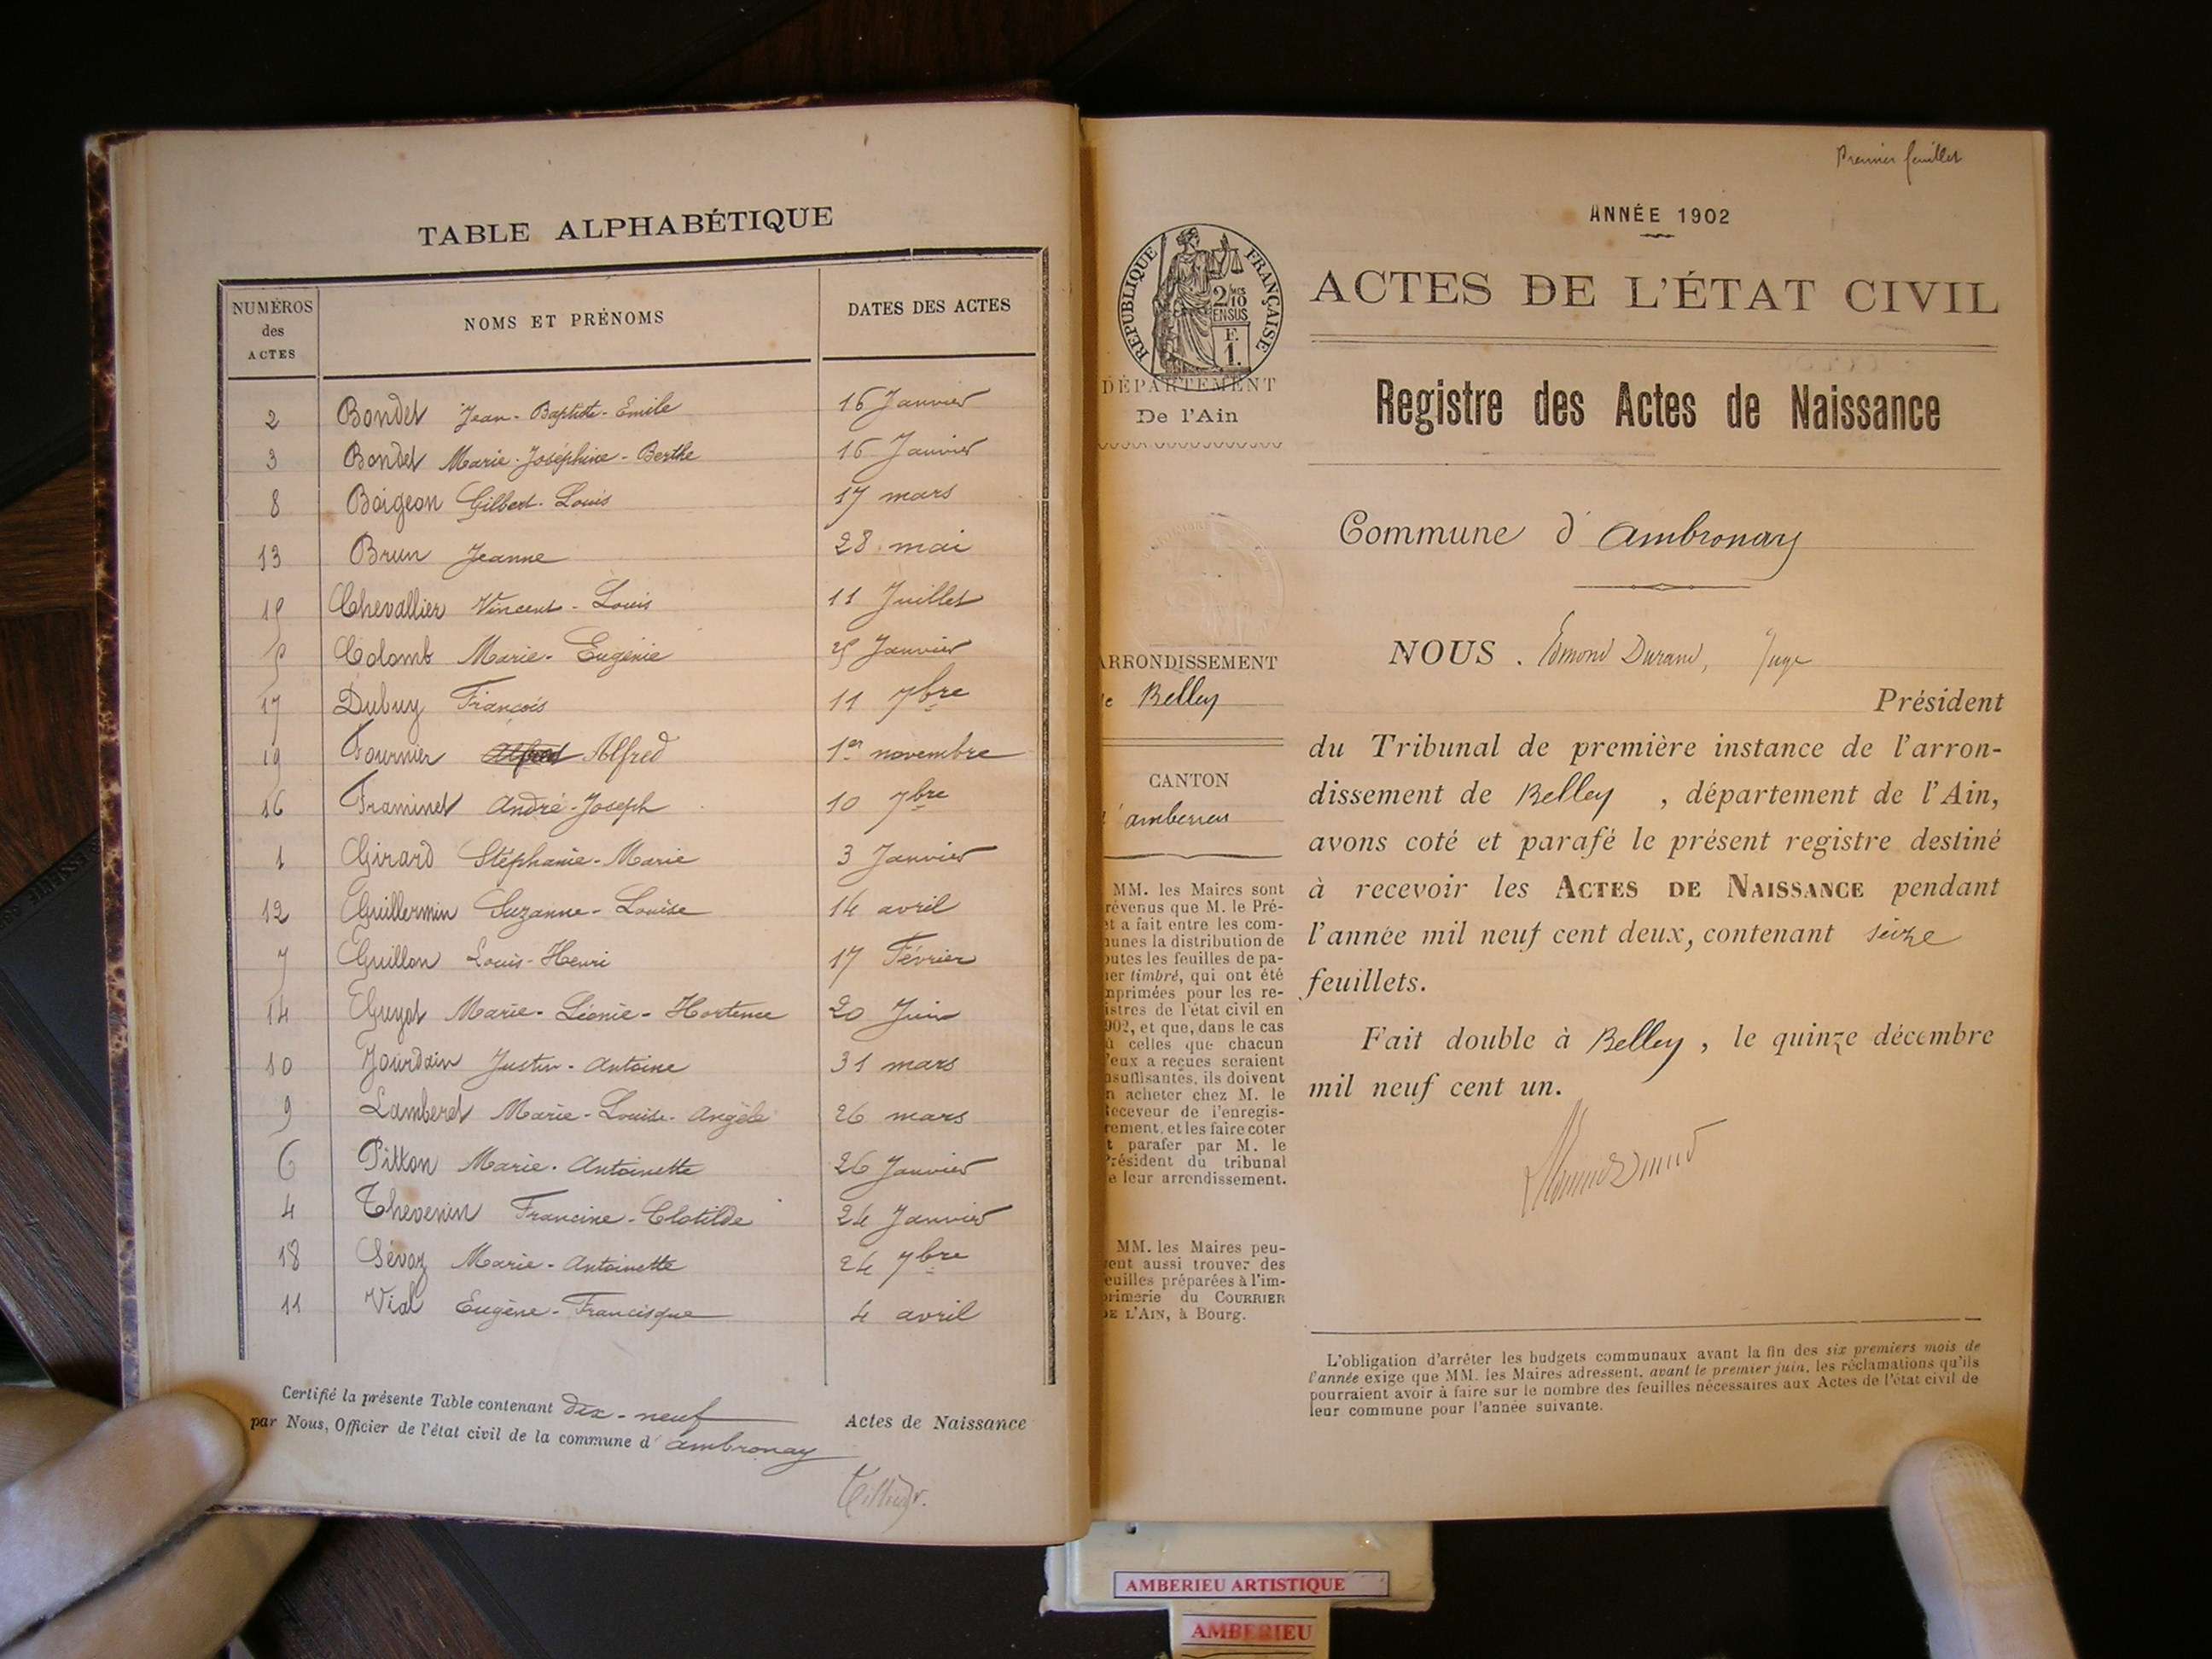 TABLE ALPHABÉTIQUE
NUMÉROS des ACTES NOMS ET PRÉNOMS DATES DES ACTES
2 Bondet Jean-Baptiste-Emile 16 Janvier
3 Bondet Marie-Joséphine-Berthe 16 Janvier
8 Boigeon Gilbert-Louis 17 mars
13 Brun Jeanne 28 mai
15 Chevallier Vincent-Louis 11 Juillet
5 Colomb Marie-Eugénie 25 Janvier
17 Dubuy François 11 7bre
19 Fournier Alfred Alfred 1er novembre
16 Framinet André-Joseph 10 7bre
1 Girard Stéphanie-Marie 3 Janvier
12 Guillermin Suzanne-Louise 14 avril
7 Guillon Louis-Henri 17 Février
14 Guyot Marie-Léonie-Hortense 20 Juin
10 Jourdain Justin-Antoine 31 mars
9 Lamberet Marie-Louise-Angèle 26 mars
6 Pitton Marie-Antoinette 26 Janvier
4 Thevenin Francine-Clotilde 24 Janvier
18 Sévoz Marie-Antoinette 24 7bre
11 Vial Eugène-Francisque 4 avril
Certifié la présente Table contenant dix-neuf Actes de Naissance
par Nous, Officier de l'état civil de la commune d'ambronay
Premier feuillet
ANNÉE 1902
RÉPUBLIQUE FRANÇAISE
2/10mes
EN SUS
F.
1.
DÉPARTEMENT
De l'Ain
ARRONDISSEMENT
de Belley
CANTON
d'amberieu
MM. les Maires sont
révenus que M. le Pré-
et a fait entre les com-
unes la distribution de
outes les feuilles de pa-
ier timbré, qui ont été
mprimées pour les re-
istres de l'état civil en
902, et que, dans le cas
ù celles que chacun
'eux a reçues seraient
nsuffisantes, ils doivent
n acheter chez M. le
eceveur de l'enregis-
rement, et les faire coter
t parafer par M. le
résident du tribunal
e leur arrondissement.
MM. les Maires peu-
ent aussi trouver des
euilles préparées à l'im-
primerie du COURRIER
DE L'AIN, à Bourg.
ACTES DE L'ÉTAT CIVIL
Registre des Actes de Naissance
Commune d'Ambronay
NOUS. Edmond Durand, Juge
Président
du Tribunal de première instance de l'arron-
dissement de Belley, département de l'Ain,
avons coté et parafé le présent registre destiné
à recevoir les ACTES DE NAISSANCE pendant
l'année mil neuf cent deux, contenant seize
feuillets.
Fait double à Belley, le quinze décembre
mil neuf cent un.
L'obligation d'arrêter les budgets communaux avant la fin des six premiers mois de
l'année exige que MM. les Maires adressent, avant le premier juin, les réclamations qu'ils
pourraient avoir à faire sur le nombre des feuilles nécessaires aux Actes de l'état civil de
leur commune pour l'année suivante.
AMBERIEU ARTISTIQUE
AMBERIEU